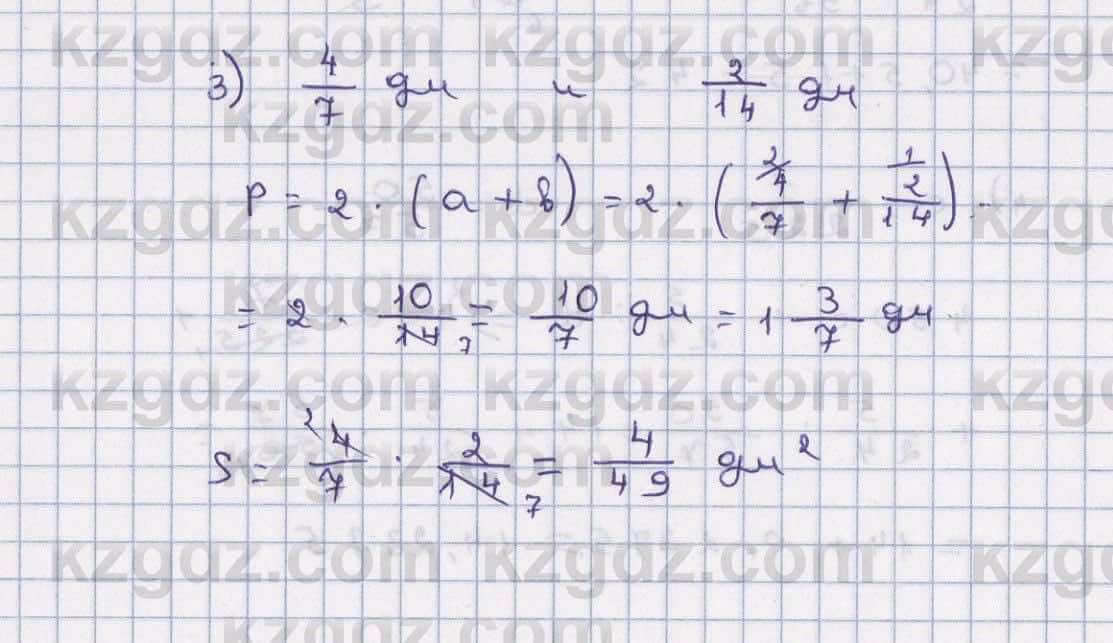 kzgdz.com kzgdz.com kzgdz.com
3) 4/7 дм и 2/14 дм
kzgdz.com kzgdz.com
P = 2 · (a + b) = 2 · (4/7 ² + 2/14 ¹) =
kzgdz.com kzgdz.com kzgdz.com
= 2 · 10/14 ₇ = 10/7 дм = 1 3/7 дм
kzgdz.com kzgdz.com
kzgdz.com kzgdz.com kzgdz.com
S = ²4/7 · 2/14 ₇ = 4/49 дм²
kzgdz.com kzgdz.com
kzgdz.com kzgdz.com kzgdz.com
kzgdz.com kzgdz.com